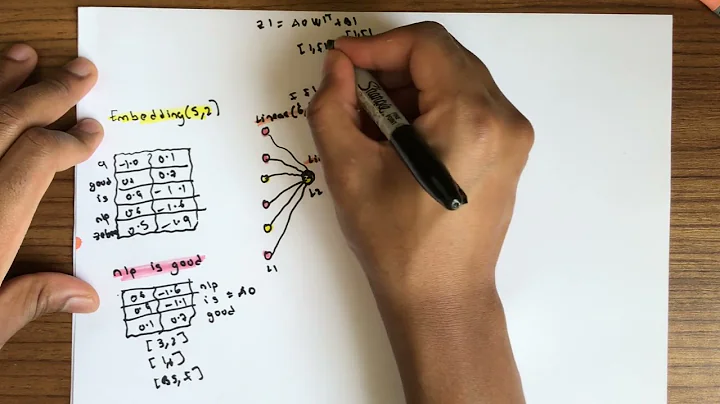 Z1 = A0 W1T + B1
Embedding(5,2)
Linear(6,
a -1.0 0.1
good 0.1 0.2
is 0.9 -1.1
nlp 0.6 -1.6
zebra 0.5 -1.9
L2
L1
nlp is good
0.6 -1.6 nlp
0.9 -1.1 is = A0
0.1 0.2 good
[3,2]
[1,6]
Sharpie